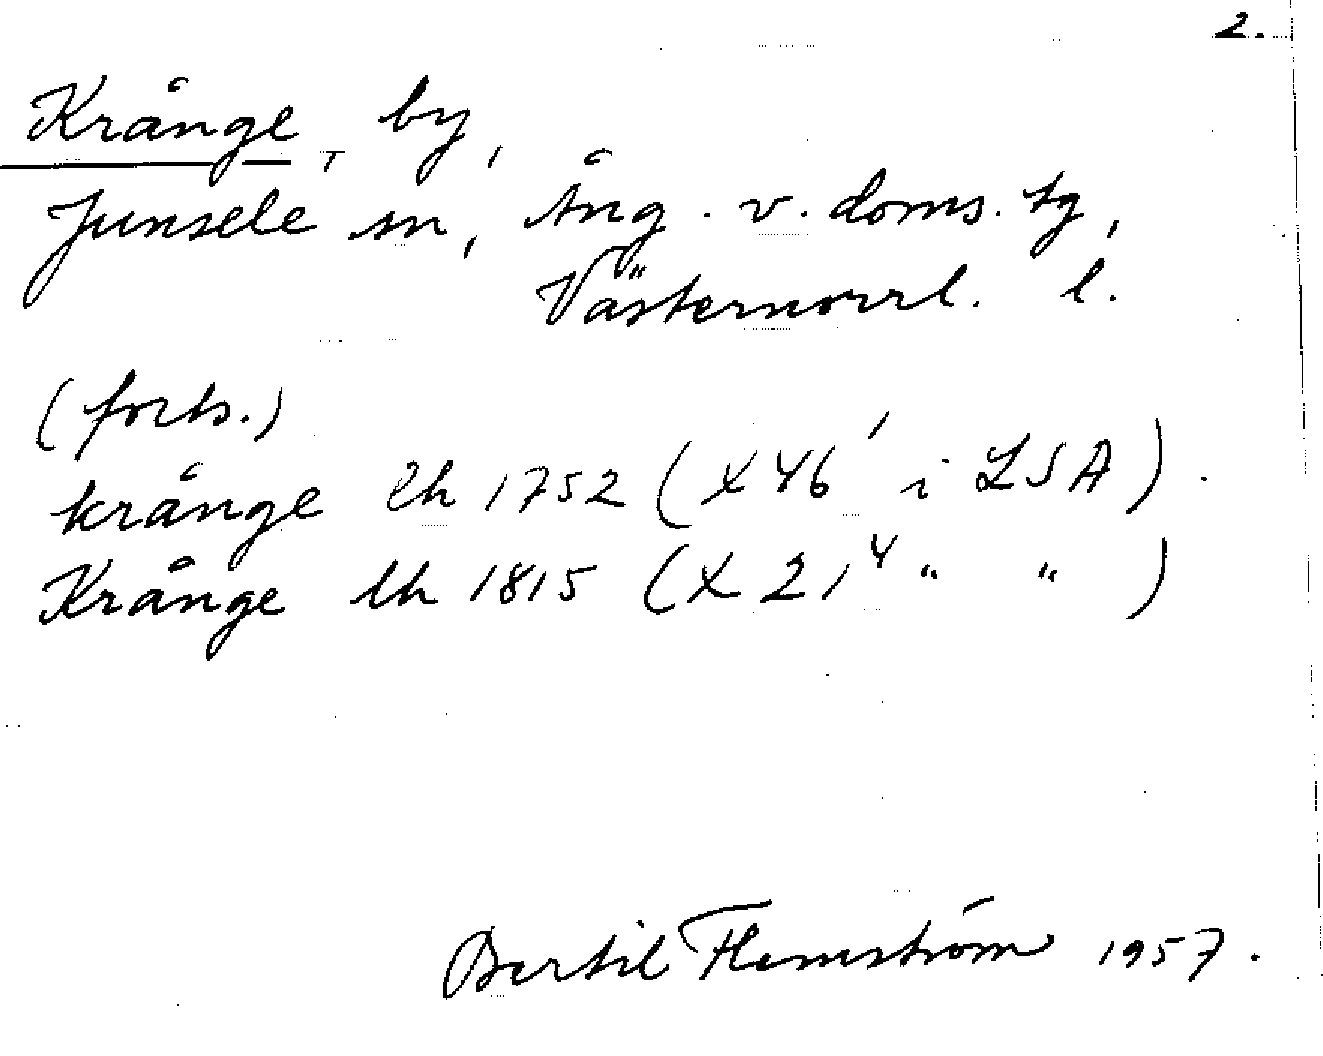 2.
Krånge, by,
Junsele sn, Ång. v. doms. tg,
Västernorrl. l.
(forts.)
krånge lh 1752 (X46' i LSA).
Krånge lh 1815 (X 21⁴ " " )
Bertil Flemström 1957.